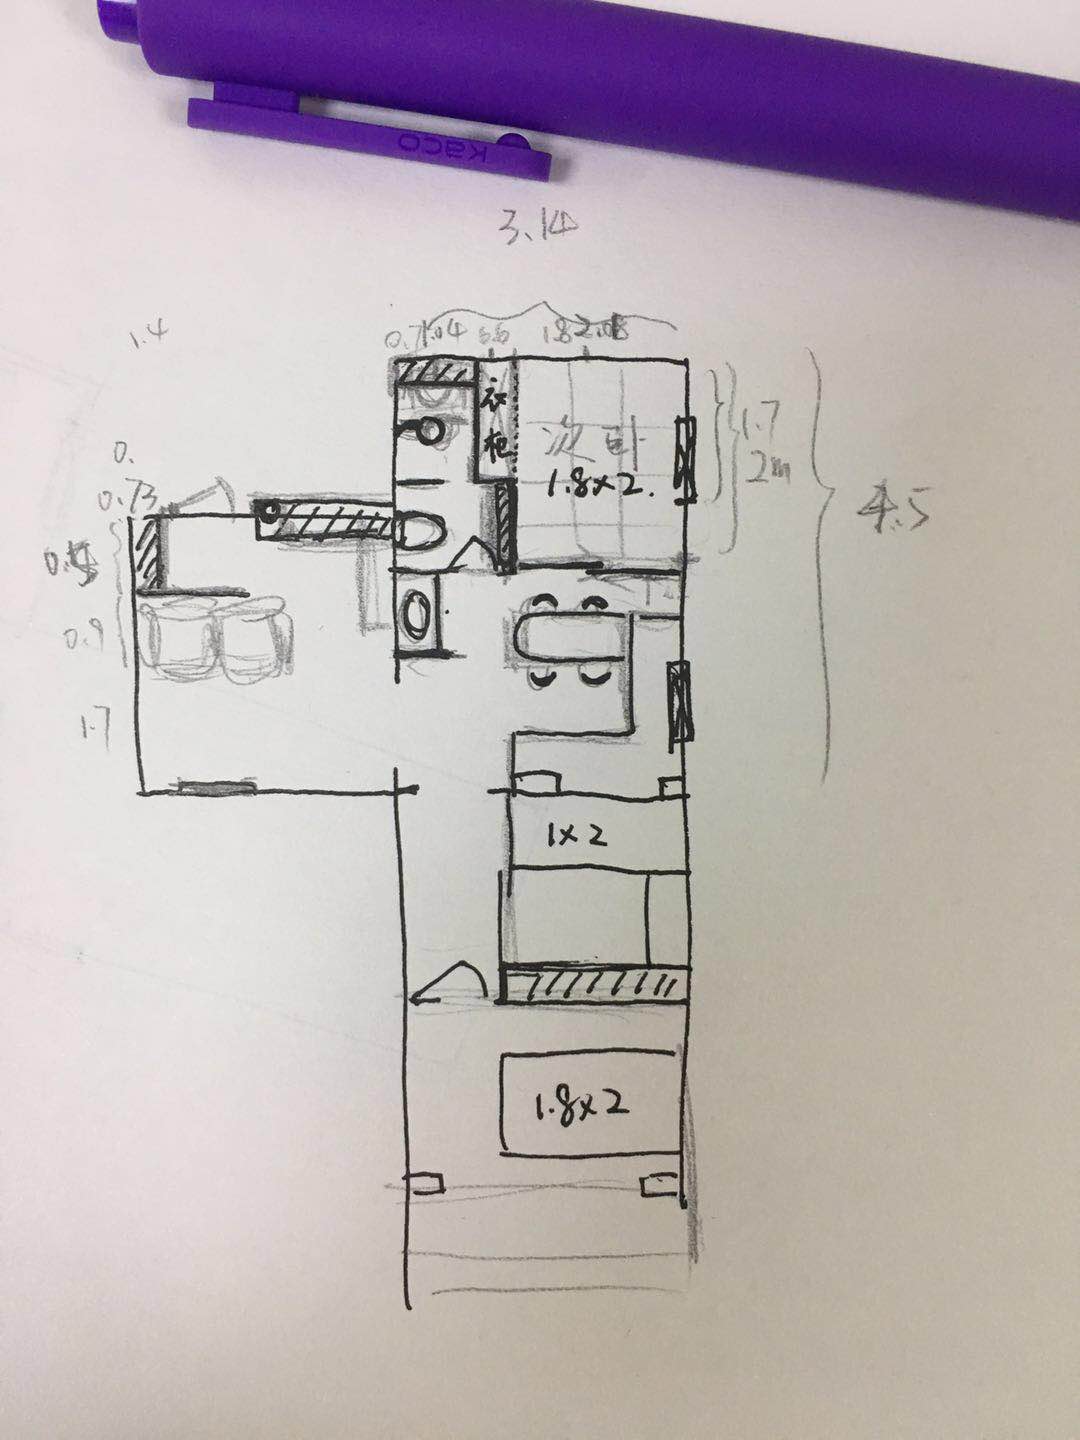 kaco
3.14
1.4
0.7
1.04
66
1.8
衣柜
次卧
1.8×2.
1.7
2m
4.5
0.
0.73
0.9
1.7
1×2
1.8×2